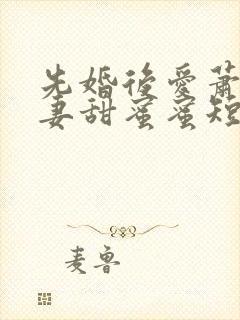 先婚後愛蕭
妻甜蜜蜜短
麦鲁